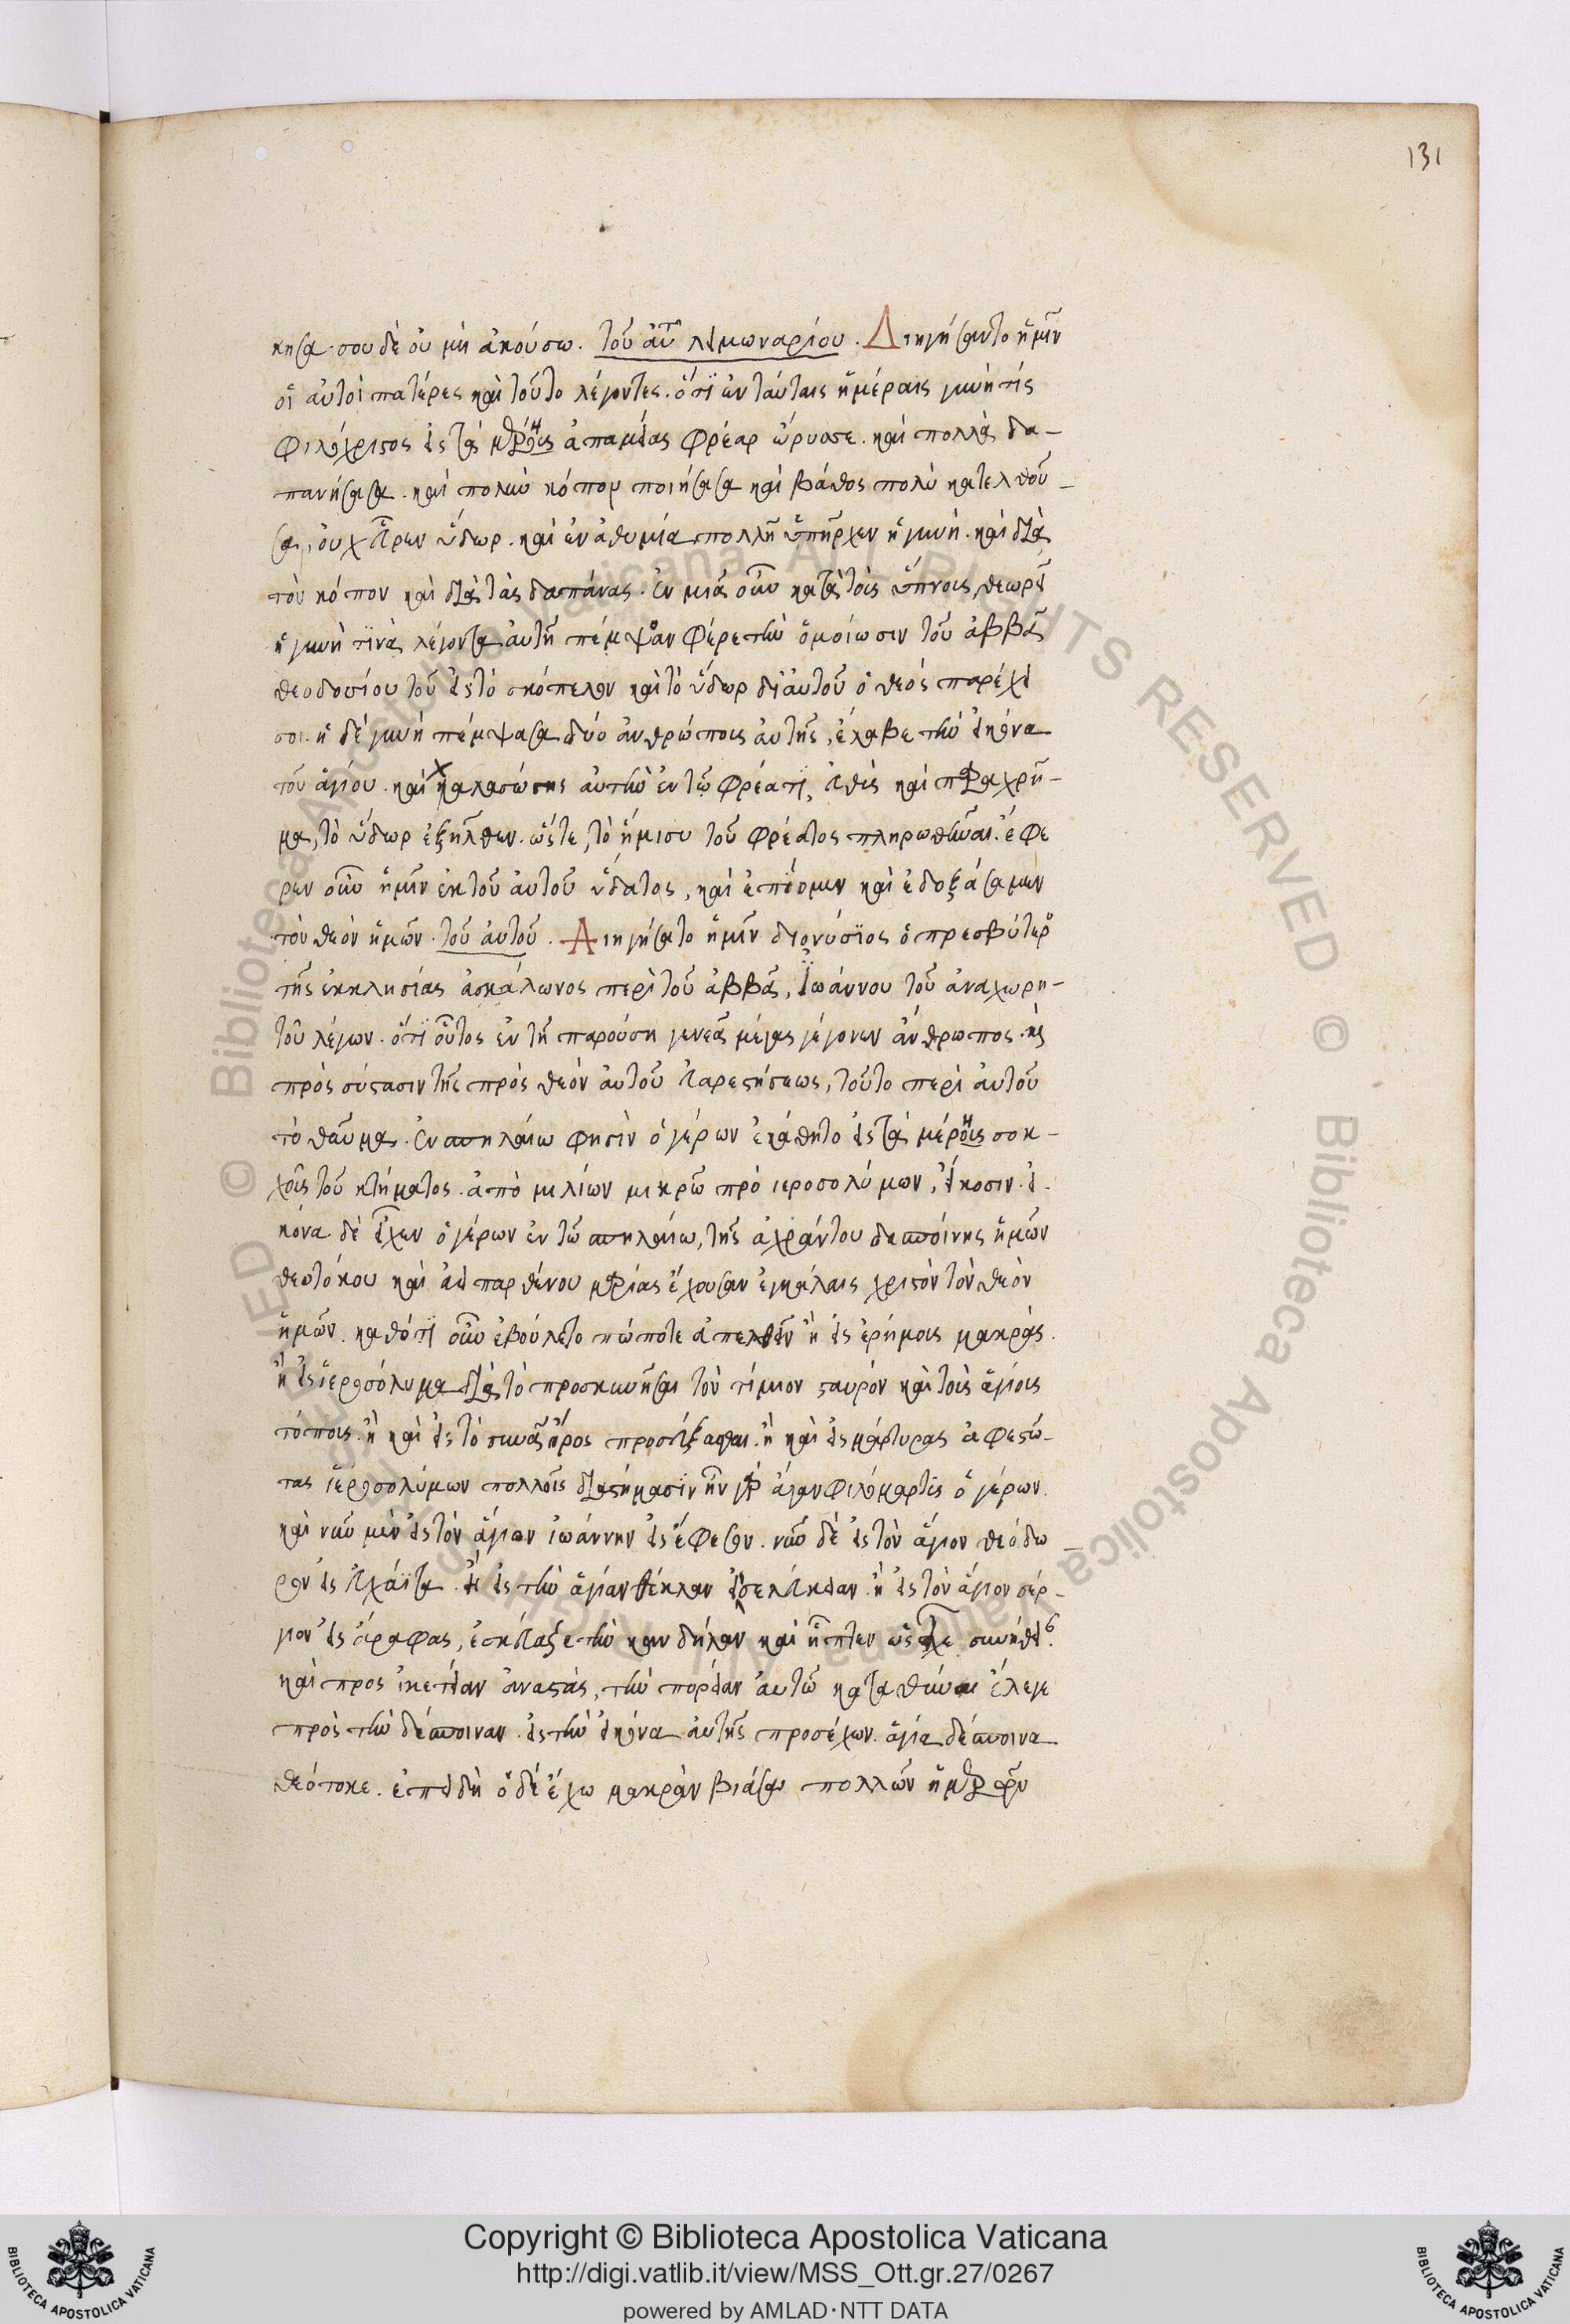 131
κησα· σου δὲ οὐ μὴ ἀκούσω. τοῦ αὐτ λειμωναρίου. Διηγήσαντο ἡμῖν
οἱ αὐτοὶ πατέρες καὶ τοῦτο λέγοντες. ὅτι ἐν ταύταις ἡμέραις γυνή τις
φιλόχριστος εἰς τὰ μέρη ἀπαμείας φρέαρ ὤρυσσε. καὶ πολλὰ δα-
πανήσασα. καὶ πολὺν κόπον ποιήσασα καὶ βάθος πολὺ κατελθοῦ-
σα, οὐχ εὗρεν ὕδωρ. καὶ ἐν ἀθυμία πολλῆ ὑπῆρχεν ἡ γυνή. καὶ διὰ
τὸν κόπον καὶ διὰ τὰς δαπάνας. ἐν μιᾶ οὖν κατὰ τοὺς ὕπνους, θεωρεῖ
ἡ γυνὴ τινὰ λέγοντα αὐτῆ πέμψον φέρε τὴν ὁμοίωσιν τοῦ ἀββᾶ
θεοδοσίου τοῦ εἰς τὸ σκόπελον καὶ τὸ ὕδωρ δι αὐτοῦ ὁ θεός παρέχει
σοι. ἡ δὲ γυνή πέμψασα δύο ἀνθρώπους αὐτῆς, ἔλαβε τὴν εἰκόνα
τοῦ ἁγίου. καὶ χαλασάσης αὐτὴν ἐν τῶ φρέατι, εὐθὺς καὶ παραχρῆ-
μα, τὸ ὕδωρ ἐξῆλθεν. ὥστε, τὸ ἥμισυ τοῦ φρέατος πληρωθῆναι. ἔφε
ρεν οὖν ἡμῖν ἐκ τοῦ αὐτοῦ ὕδατος, καὶ ἐπίομεν καὶ ἐδοξάσαμεν
τὸν θεὸν ἡμῶν. τοῦ αὐτοῦ. Διηγήσατο ἡμῖν διονύσιος ὁ πρεσβύτερο
τῆς ἐκκλησίας ἀσκάλωνος περὶ τοῦ ἀββᾶ, ἰωάννου τοῦ ἀναχωρη-
τοῦ λέγων. ὅτι οὗτος ἐν τῆ παρούση γενεᾶ μέγας γέγονεν ἄνθρωπος. καὶ
πρὸς σύστασιν τῆς πρὸς θεὸν αὐτοῦ εὐαρεστήσεως, τοῦτο περὶ αὐτοῦ
τὸ θαῦμα. ἐν σπηλαίω φησὶν ὁ γέρων ἐκάθητο εἰς τὰ μέρη σοκ-
χοῦς τοῦ κτήματος. ἀπὸ μιλίων μικρῶ πρὸ ιεροσολύμων, εἴκοσιν. εἰ-
κόνα δὲ εἶχεν ὁ γέρων ἐν τῶ σπηλαίω, τῆς ἀχράντου δεσποίνης ἡμῶν
θεοτόκου καὶ ἀεὶ παρθένου μαρίας ἔχουσαν ἐγκάλαις χριστὸν τὸν θεὸν
ἡμῶν. καθότι οὖν ἐβούλετο πώποτε ἀπελθεῖν ἢ εἰς ἐρήμους μακρὰς.
ἢ εἰς ἱεροσόλυμα διὰ τὸ προσκυνῆσαι τὸν τίμιον σταυρόν καὶ τοὺς ἁγίους
τόπους. ἢ καὶ εἰς τὸ σινᾶ ὄρος προσεύξασθαι. ἢ καὶ εἰς μάρτυρας ἀφεστώ-
τας ἱεροσολύμων πολλοῖς διαστήμασιν ἦν γὰρ ἄγαν φιλόμαρτυς ὁ γέρων.
καὶ νῦν μὲν εἰς τὸν ἅγιον ἰωάννην εἰς ἔφεσον. νῦν δὲ εἰς τὸν ἅγιον θεόδω-
ρον εἰς εὐχάϊτα. ἢ εἰς τὴν ἁγίαν θέκλαν εἰς σελεύκειαν. ἢ εἰς τὸν ἅγιον σέρ-
γιον εἰς ἄραφας, ἐσκεύαζε τὴν κανδήλαν καὶ ἧπτεν ὡς εἶχε συνήθει.
καὶ προς ἱκετείαν ἀναστὰς, τὴν πορείαν αὐτῶ κατευθῦναι ἔλεγε
πρὸς τὴν δέσποιναν. εἰς τὴν εἰκόνα αὐτῆς προσέχων. ἁγία δέσποινα
θεότοκε. ἐπειδὴ ὁδὸν ἔχω μακρὰν βιάσαι πολλῶν ἡμερῶν
Copyright © Biblioteca Apostolica Vaticana
http://digi.vatlib.it/view/MSS_Ott.gr.27/0267
powered by AMLAD·NTT DATA
BIBLIOTECA APOSTOLICA VATICANA
BIBLIOTECA APOSTOLICA VATICANA